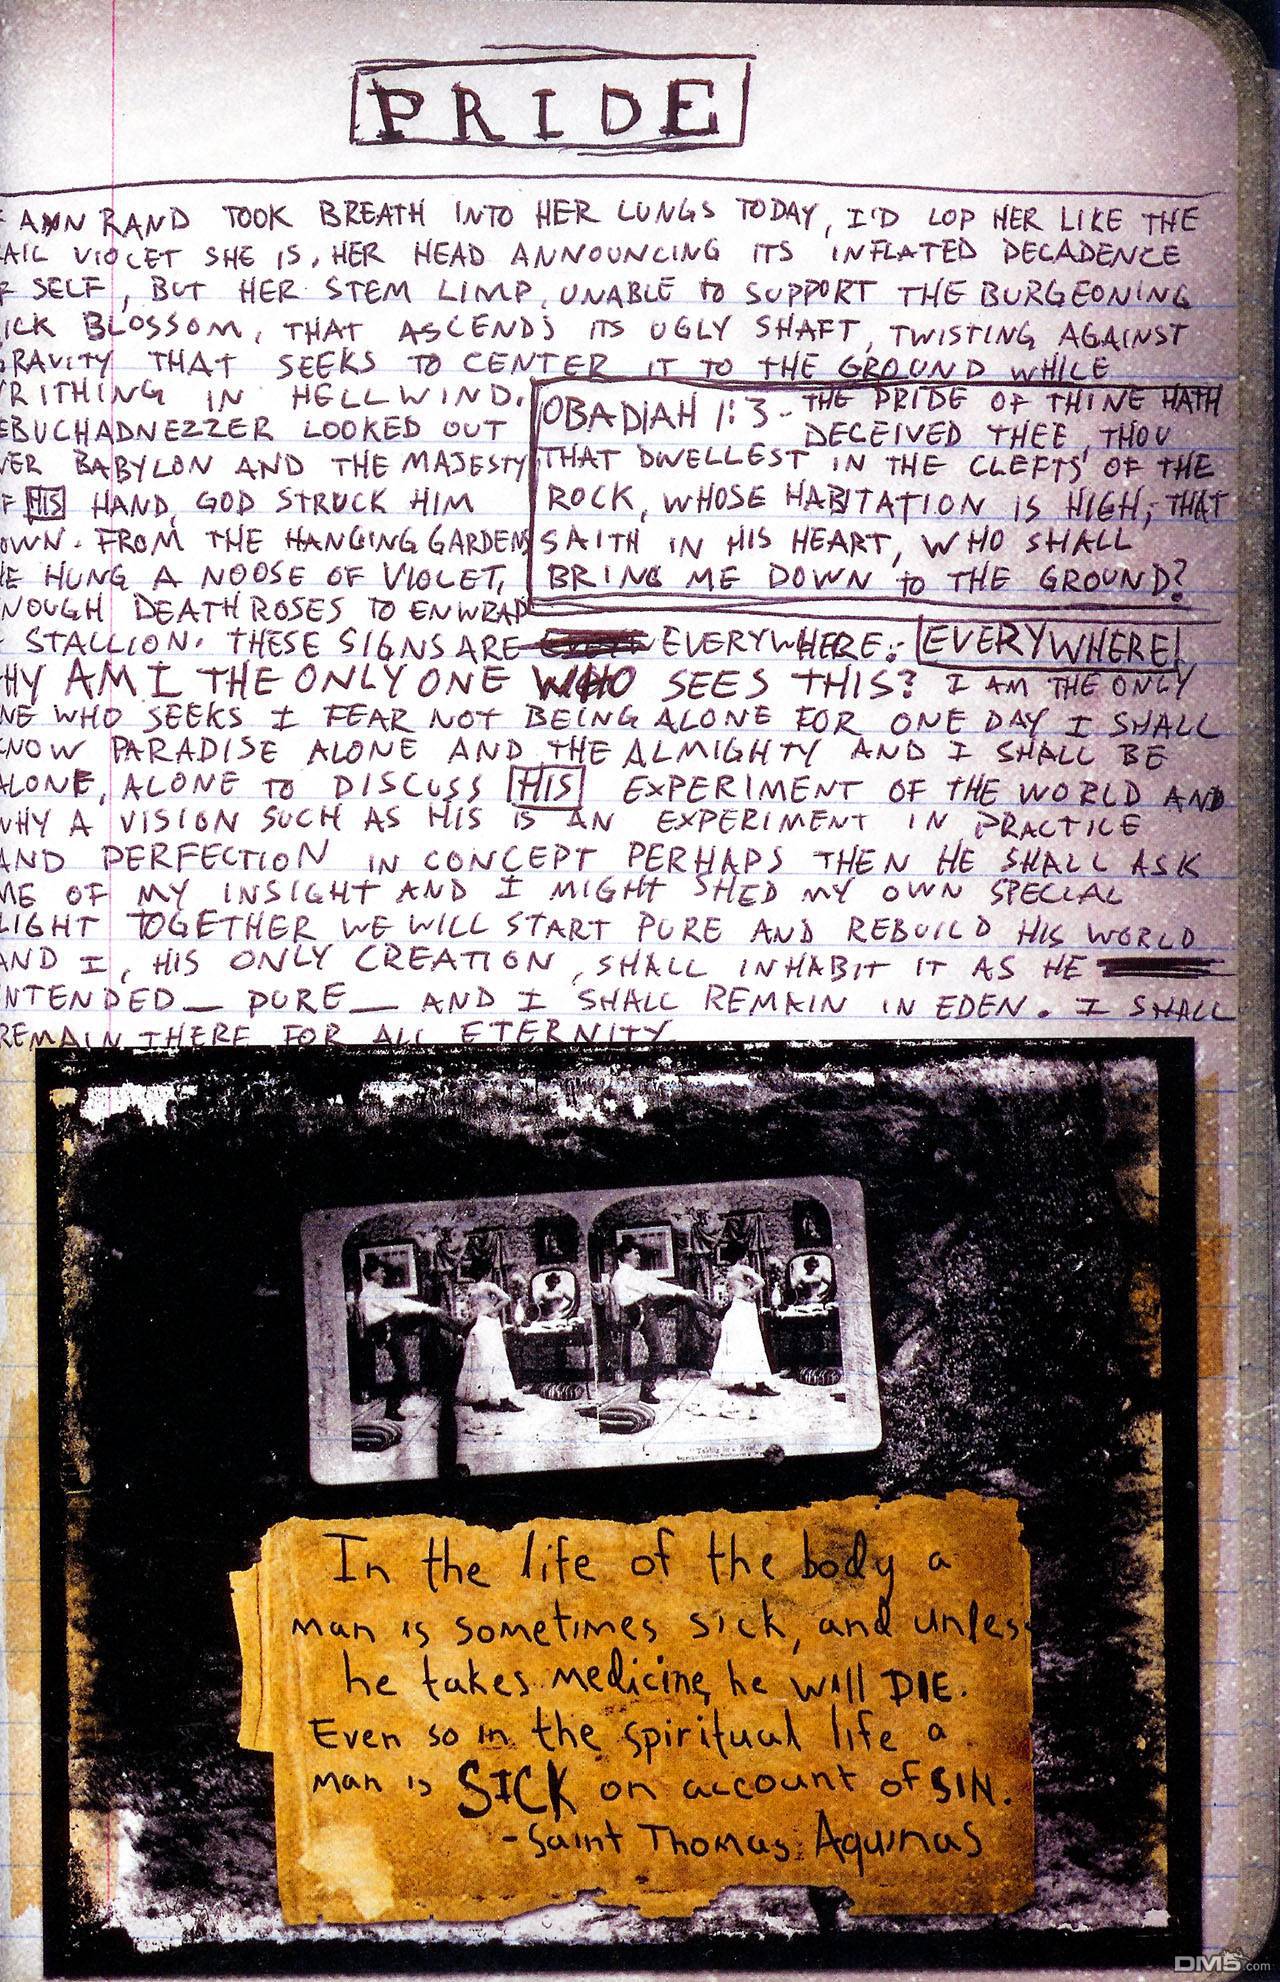 PRIDE
ANN RAND TOOK BREATH INTO HER LUNGS TODAY, I'D LOP HER LIKE THE
AIL VIOLET SHE IS, HER HEAD ANNOUNCING ITS INFLATED DECADENCE
F SELF, BUT HER STEM LIMP, UNABLE TO SUPPORT THE BURGEONING
ICK BLOSSOM, THAT ASCENDS ITS UGLY SHAFT, TWISTING AGAINST
GRAVITY THAT SEEKS TO CENTER IT TO THE GROUND WHILE
RITHING IN HELLWIND.
EBUCHADNEZZER LOOKED OUT
VER BABYLON AND THE MAJESTY
F HIS HAND, GOD STRUCK HIM
OWN. FROM THE HANGING GARDENS
HE HUNG A NOOSE OF VIOLET,
NOUGH DEATH ROSES TO ENWRAP
OBADIAH 1:3 - THE PRIDE OF THINE HATH
DECEIVED THEE, THOU
THAT DWELLEST IN THE CLEFTS OF THE
ROCK, WHOSE HABITATION IS HIGH; THAT
SAITH IN HIS HEART, WHO SHALL
BRING ME DOWN to THE GROUND?
STALLION. THESE SIGNS ARE EVERYWHERE. EVERYWHERE!
HY AM I THE ONLY ONE WHO SEES THIS? I AM THE ONLY
NE WHO SEEKS I FEAR NOT BEING ALONE FOR ONE DAY I SHALL
KNOW PARADISE ALONE AND THE ALMIGHTY AND I SHALL BE
ALONE, ALONE TO DISCUSS HIS EXPERIMENT OF THE WORLD AND
WHY A VISION SUCH AS HIS IS AN EXPERIMENT IN PRACTICE
AND PERFECTION IN CONCEPT PERHAPS THEN HE SHALL ASK
ME OF MY INSIGHT AND I MIGHT SHED MY OWN SPECIAL
LIGHT TOGETHER WE WILL START PURE AND REBUILD HIS WORLD
AND I, HIS ONLY CREATION, SHALL INHABIT IT AS HE
NTENDED_ PURE_ AND I SHALL REMAIN IN EDEN. I SHALL
REMAIN THERE FOR ALL ETERNITY
In the life of the body a
man is sometimes sick, and unles
he takes medicine, he will DIE.
Even so in the spiritual life a
man is SICK on account of SIN.
- Saint Thomas Aquinas
DM5.com